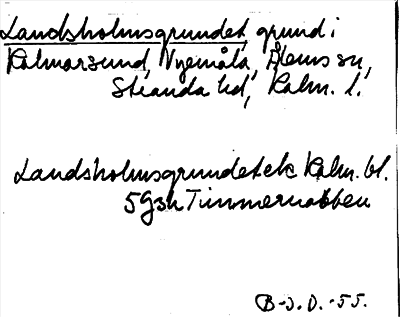 Landsholmsgrundet, grund i
Kalmarsund, Nyemåla, Ålems sn,
Stranda hd, Kalm. l.
Landsholmsgrundet ek Kalm. bl.
5 G3h Timmernabben
B-J.O. -55.